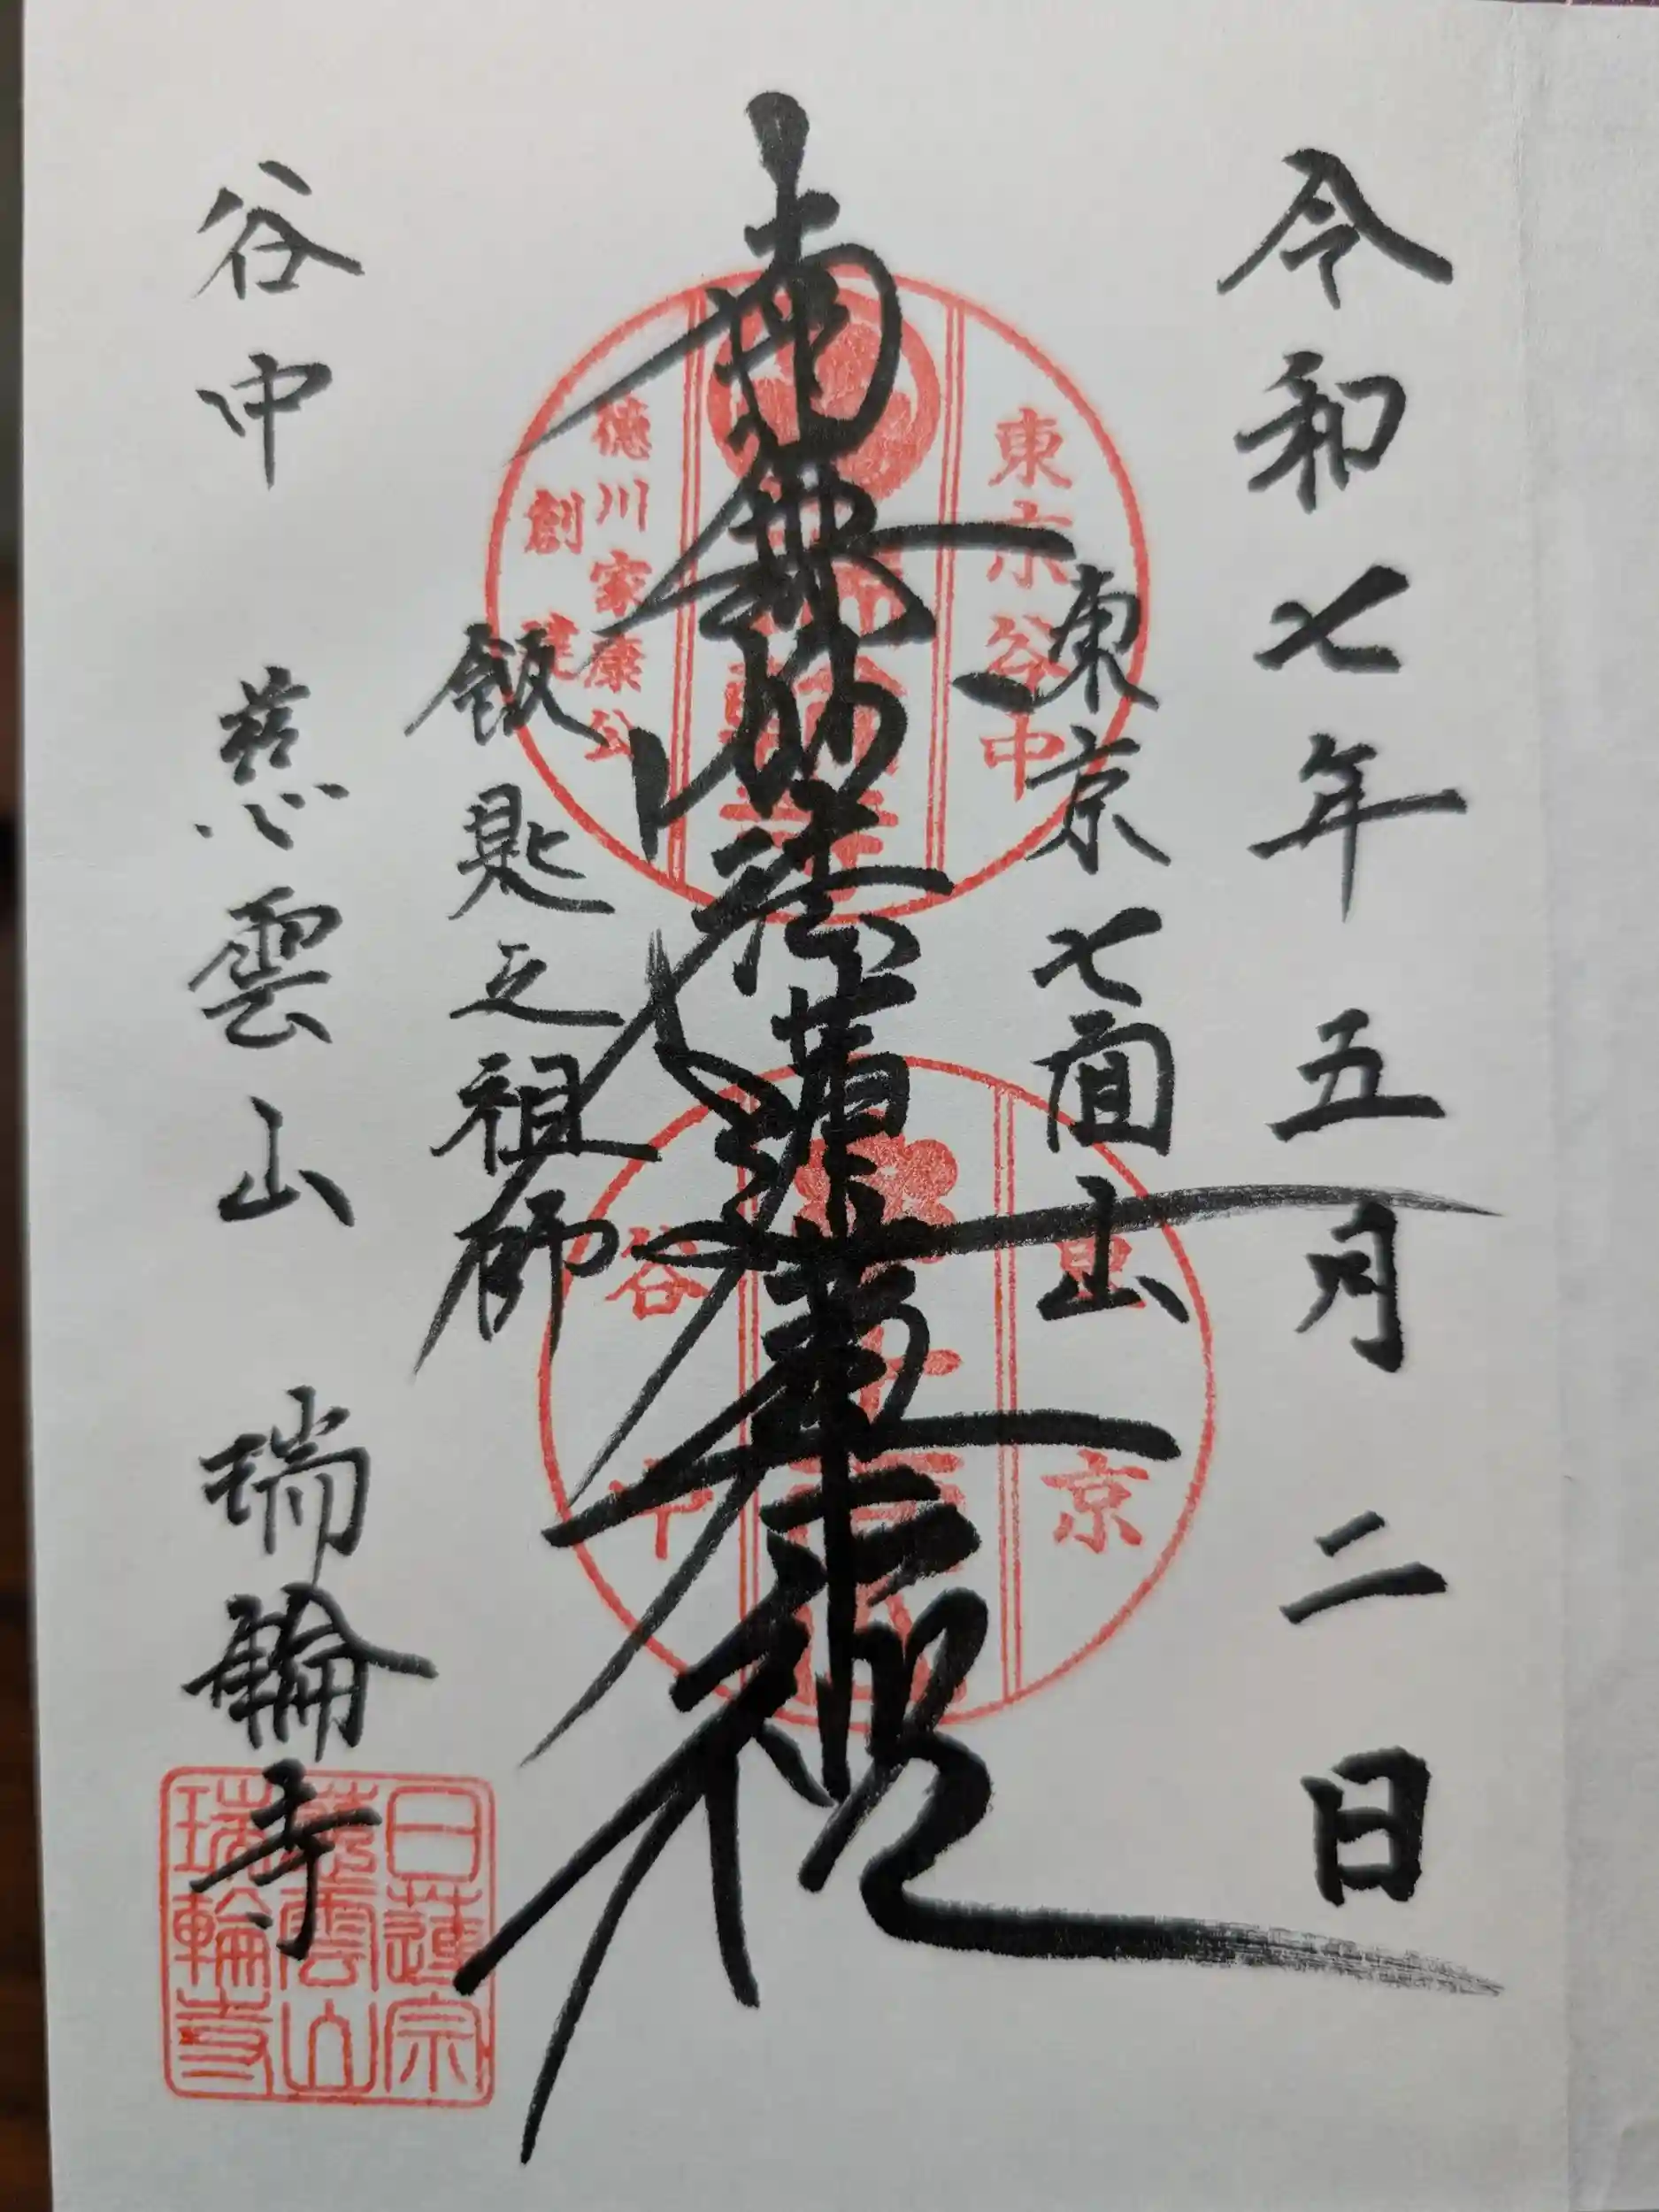 令和七年 五月 二日
東京七面山
南無妙法蓮華経
飯匙之祖師
谷中 慈雲山 瑞輪寺
東京谷中
徳川家康公
創建
東京
谷中
日蓮宗
慈雲山
瑞輪寺